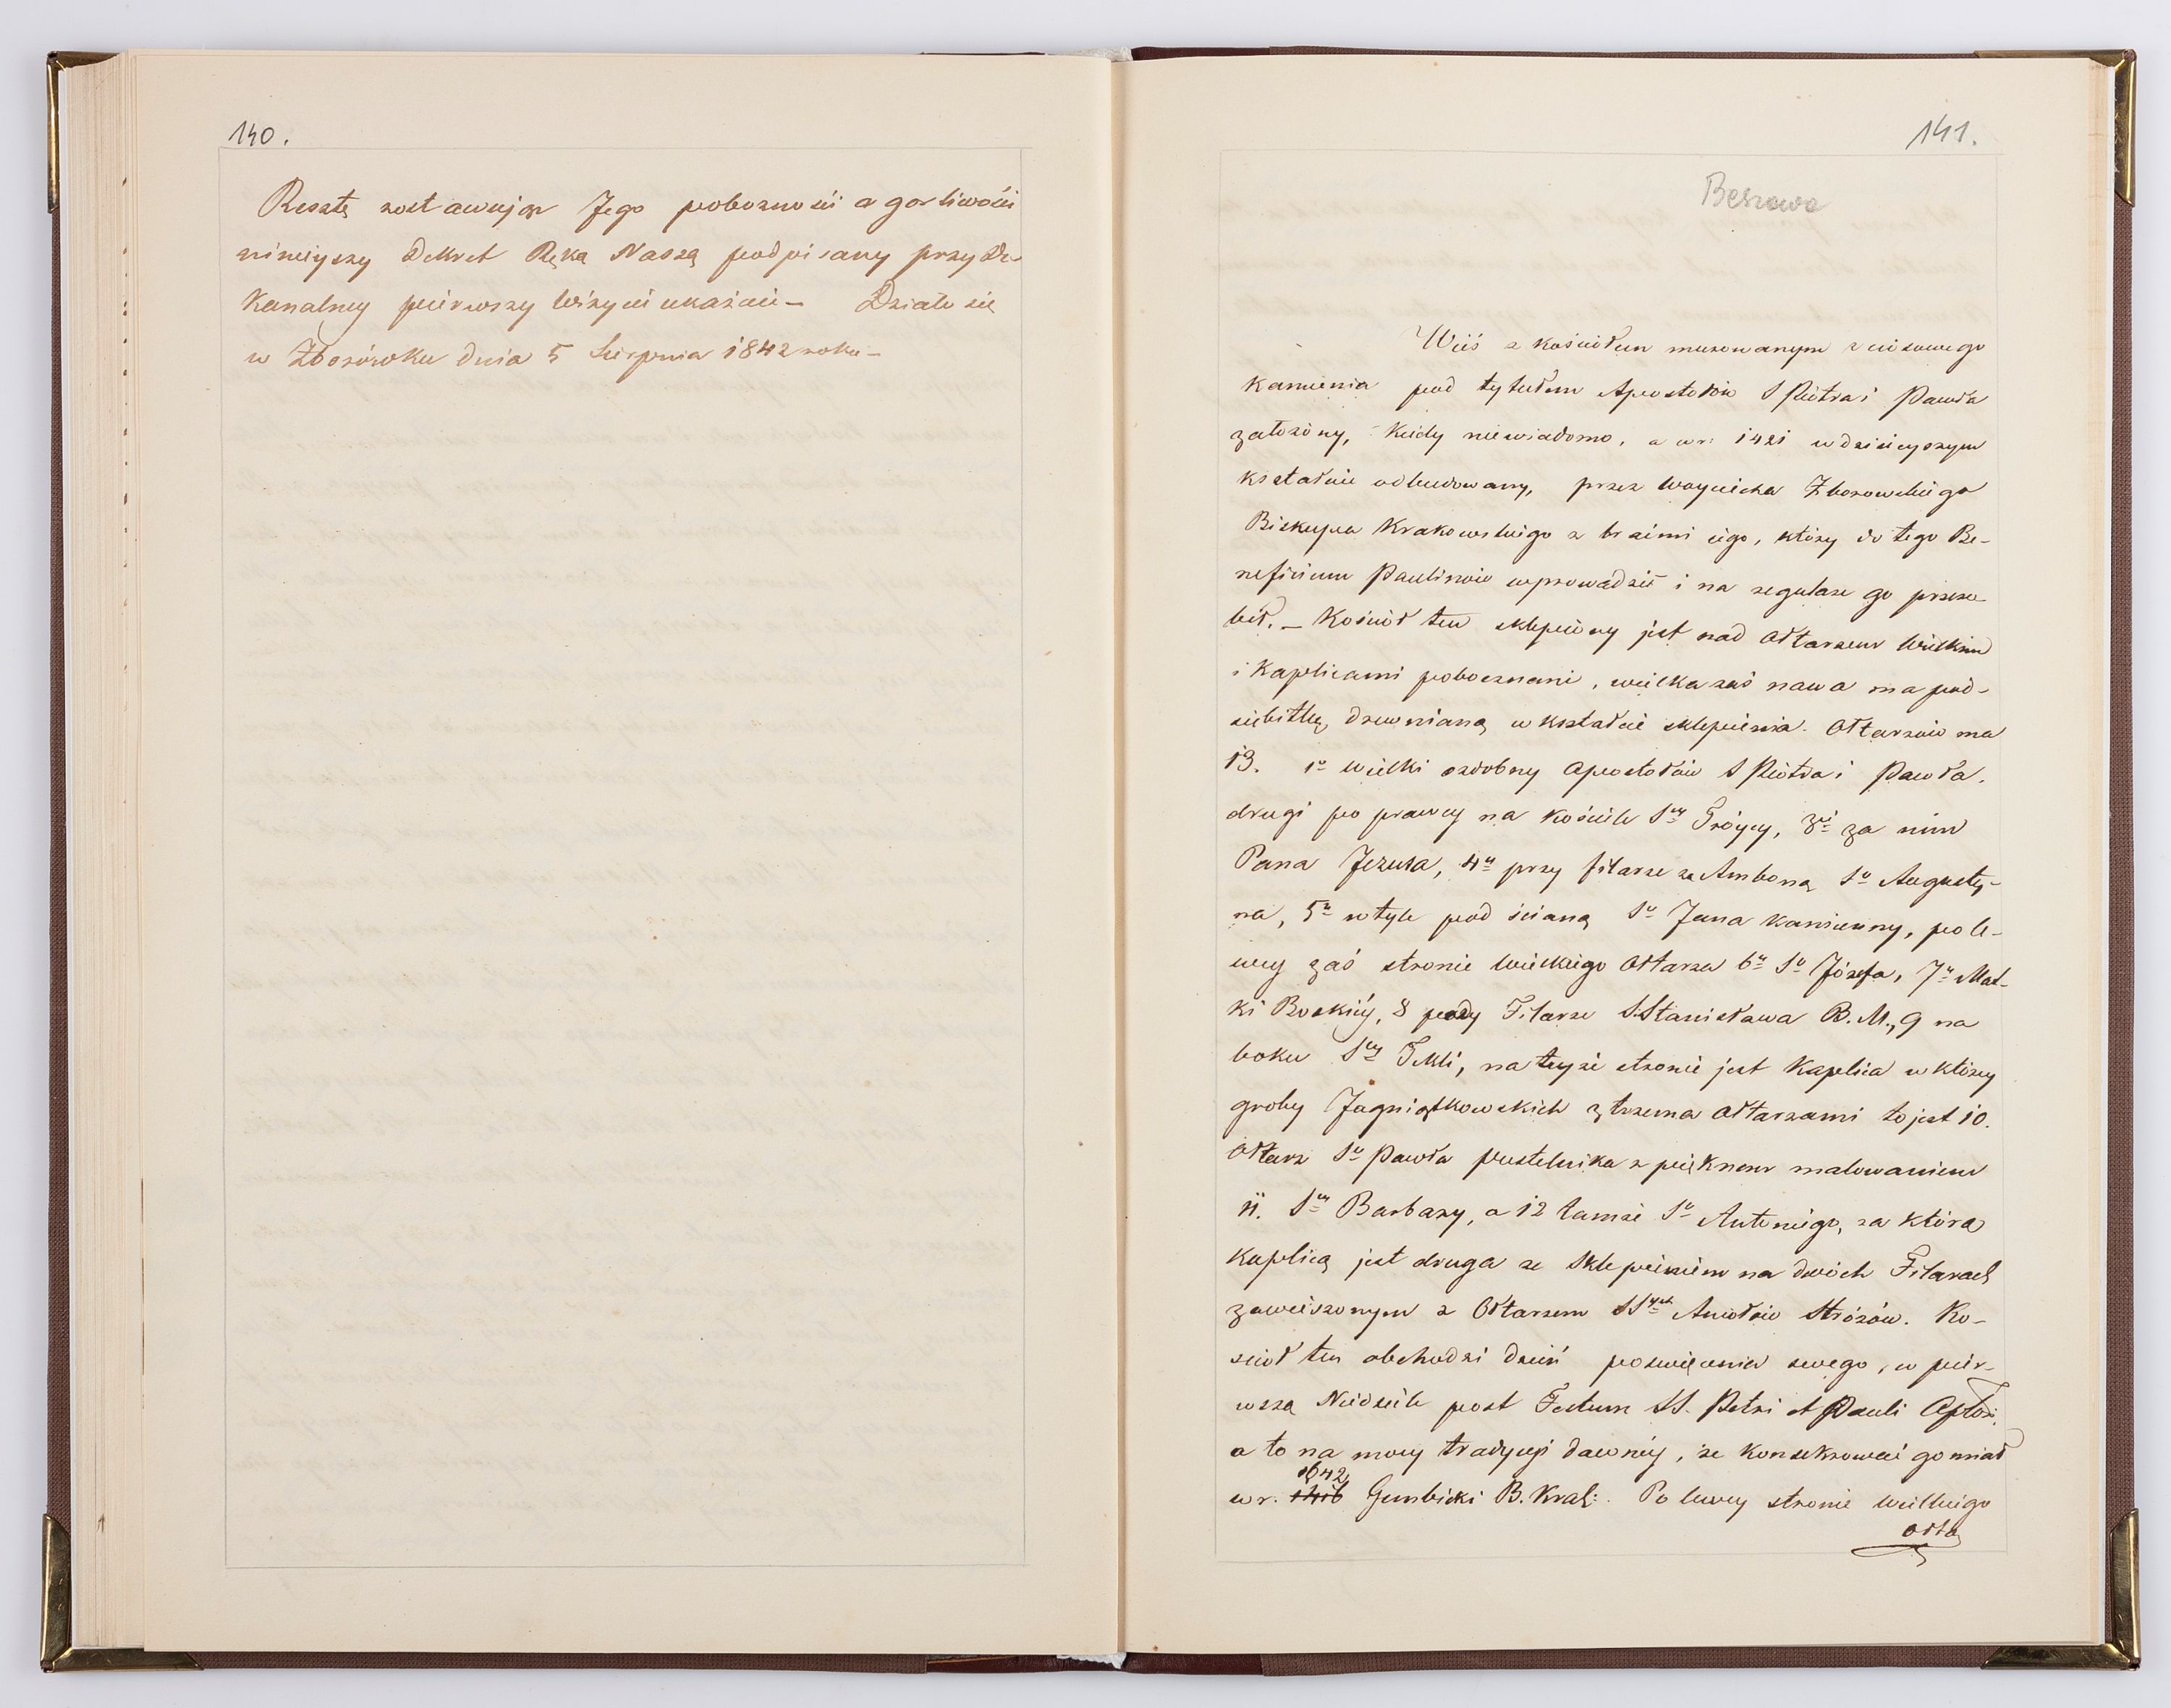 140.
Resztę zostawując Jego pobożności a gorliwości
ninieyszy Dekret Ręką Naszą podpisany przy Dzie
kanalney pierwszy Wizycie ukażcie – Działo się
w Zborówku dnia 5 Sierpnia 1842 roku –
141.
Beszowa
Wieś z kościołem murowanym z ciosowego
Kamienia pod tytułem Apostołów S Piotra i Pawła
założony, kiedy niewiadomo, a w r: 1421 w dzisieyszym
kształcie odbudowany, przez Woyciecha Zborowskiego
Biskupa Krakowskiego z braćmi iego, który do tego Be-
neficium Paulinów wprowadził i na regularne go przero
bił. – Kościół ten sklepiony jest nad Ołtarzem Wielkim
i Kaplicami pobocznemi, wielka zaś nawa ma pod-
siebitkę drewnianą w kształcie sklepienia. Ołtarzów ma
13. 1o wielki ozdobny Apostołów S Piotra i Pawła.
drugi po prawey na kościele Sey Tróycy, 3ci za nim
Pana Jezusa, 4y przy filarze za Amboną So Augusty-
na, 5y w tyle pod ścianą So Jana kamienny, po le-
wey zaś stronie Wielkiego Ołtarza 6y So Józefa, 7y Mat-
ki Boskiéy, 8 przy Filarze S. Stanisława B. M., 9 na
boku Sey Tekli, na teyże stronie jest Kaplica w którey
groby Jagniątkowskich z trzema Ołtarzami to jest 10.
Ołtarz So Pawła pustelnika z pięknem malowaniem
11. Sey Barbary, a 12 tamże So Antoniego, za którą
Kaplicą jest druga ze Sklepieniem na dwóch Filarach
zawieszonym z Ołtarzem SSych Aniołów Stróżów. Ko-
sciół ten obchodzi dzień poswięcenia swego, w pier-
wszą Niedzielę post Festum SS. Petri et Pauli Aptor:
a to na mocy tradycyi dawnéy, że konsekrować go miał
1642
w r. Gembicki B. Krak:. Po lewey stronie wielkiego
Ołta